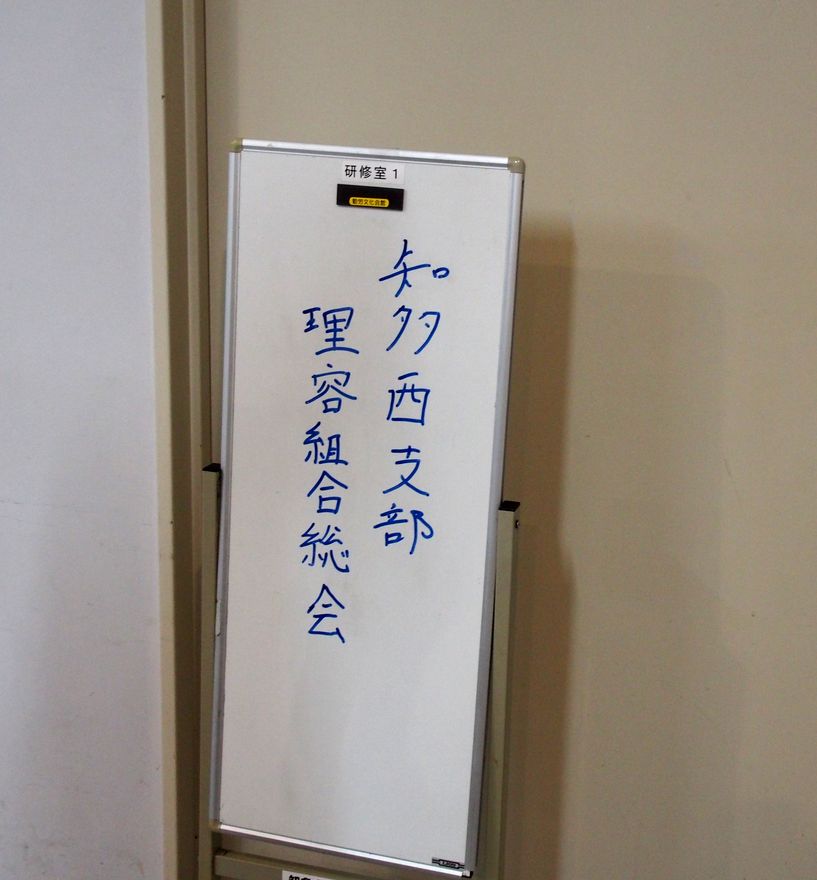 研修室 1
勤労文化会館
知多西支部
理容組合総会